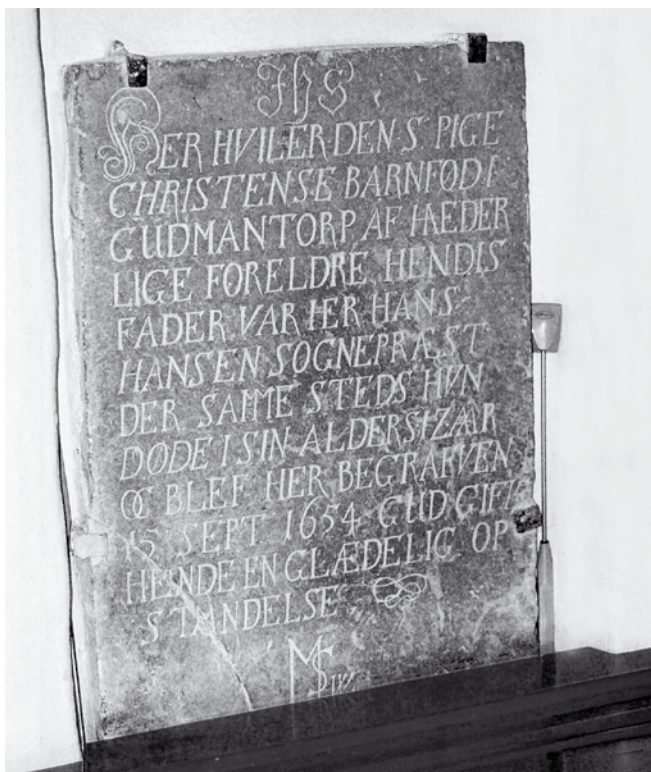 IHS
HER HVILER DEN S. PIGE
CHRISTENSE BARNFØD I
GUDMANTORP AF HÆDER
LIGE FORELDRE HENDIS
FADER VAR HER HANS
HANSEN SOGNEPRÆST
DER SAMME STEDS HUN
DØDE I SIN ALDERS AAR
OC BLEF HER BEGRARVEN
15 SEPT 1654 GUD GIFVE
HENDE EN GLÆDELIG OP
STANDELSE